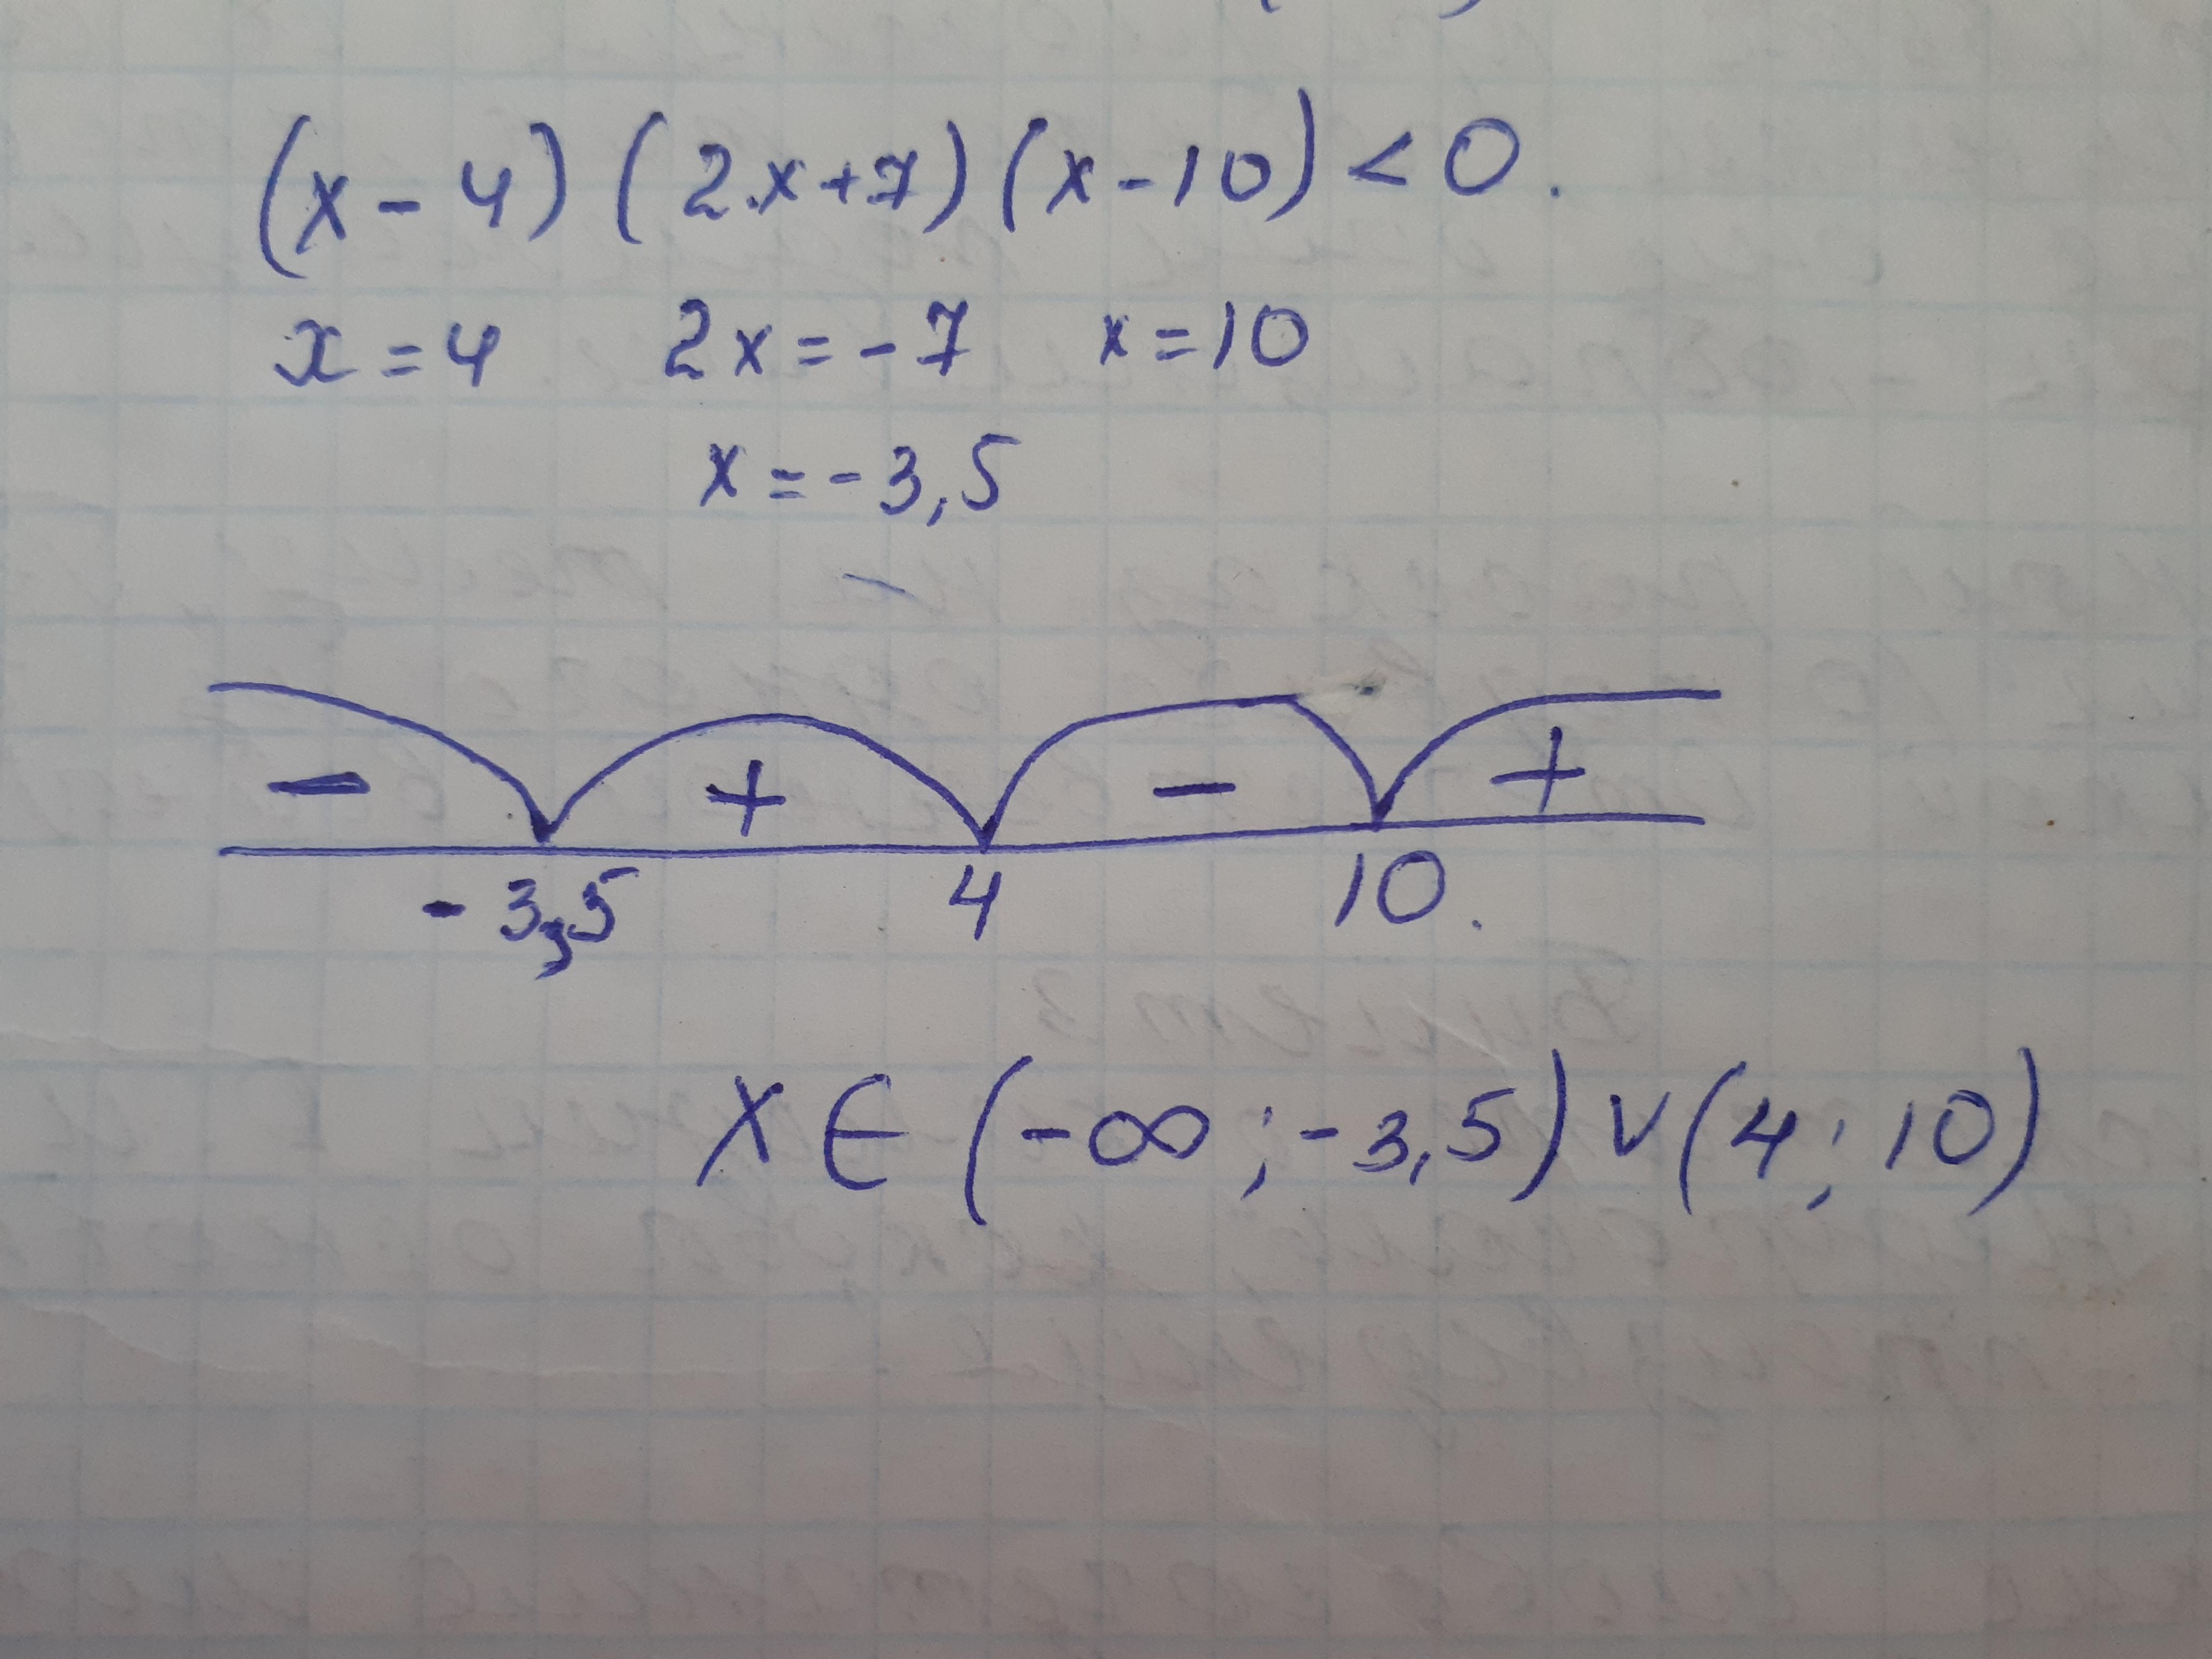 (x-4)(2x+7)(x-10)<0.
x=4 2x=-7 x=10
x=-3,5
- + - +
-3,5 4 10.
x∈(-∞;-3,5)∨(4;10)